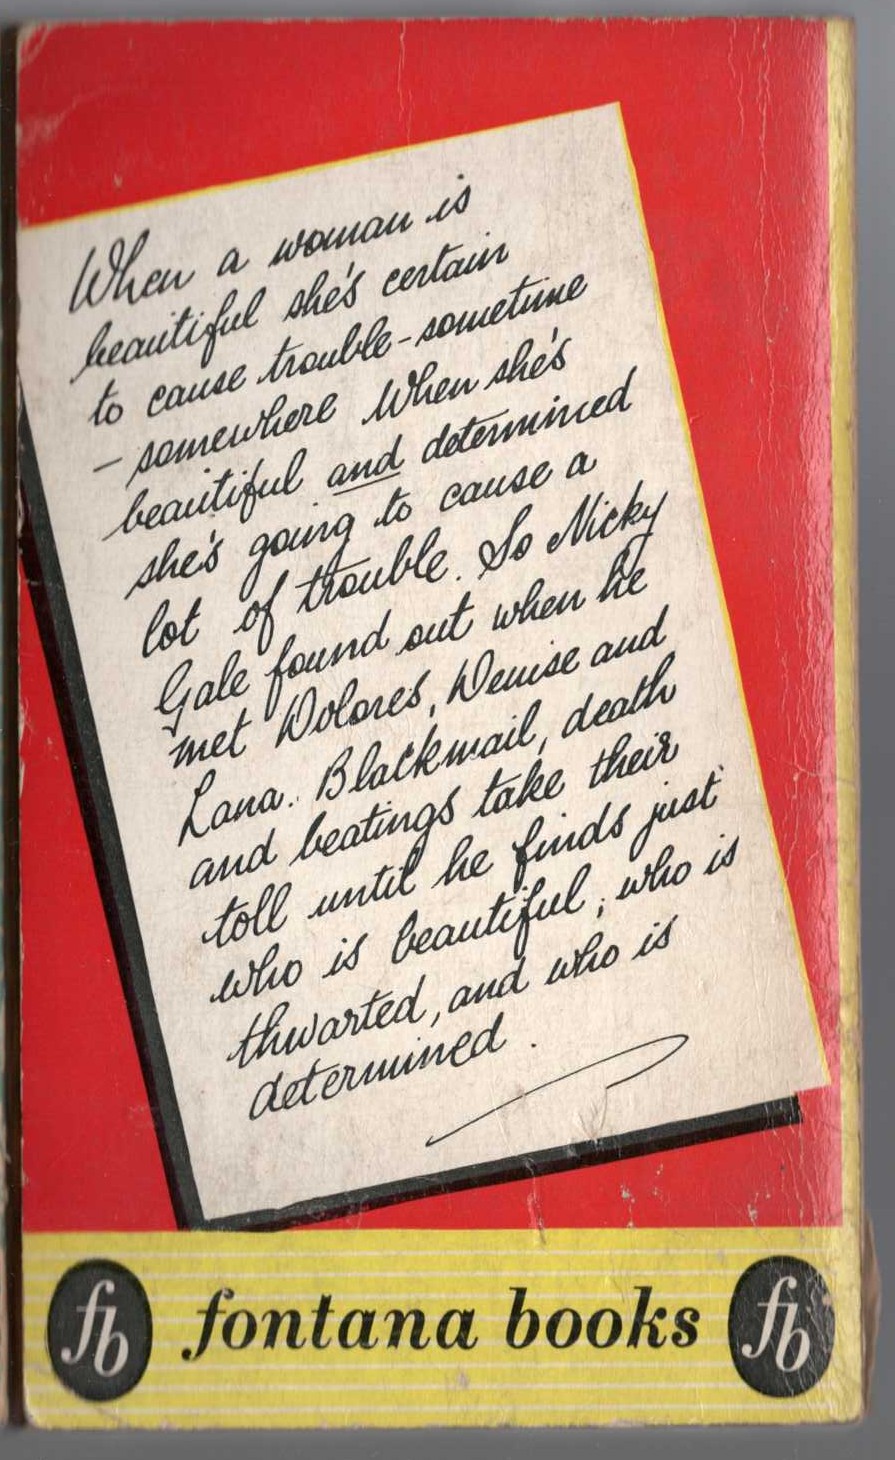 When a woman is
beautiful she's certain
to cause trouble - sometime
- somewhere When she's
beautiful and determined
she's going to cause a
lot of trouble. So Nicky
Gale found out when he
met Dolores, Denise and
Lana. Blackmail, death
and beatings take their
toll until he finds just
who is beautiful, who is
thwarted, and who is
determined.
fb fontana books fb